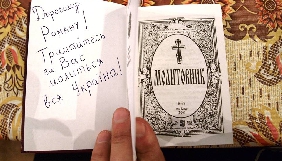 Дорогому
Роману!
Тримайтесь
за Вас
молиться
вся Україна!
МОЛИТОВНИК